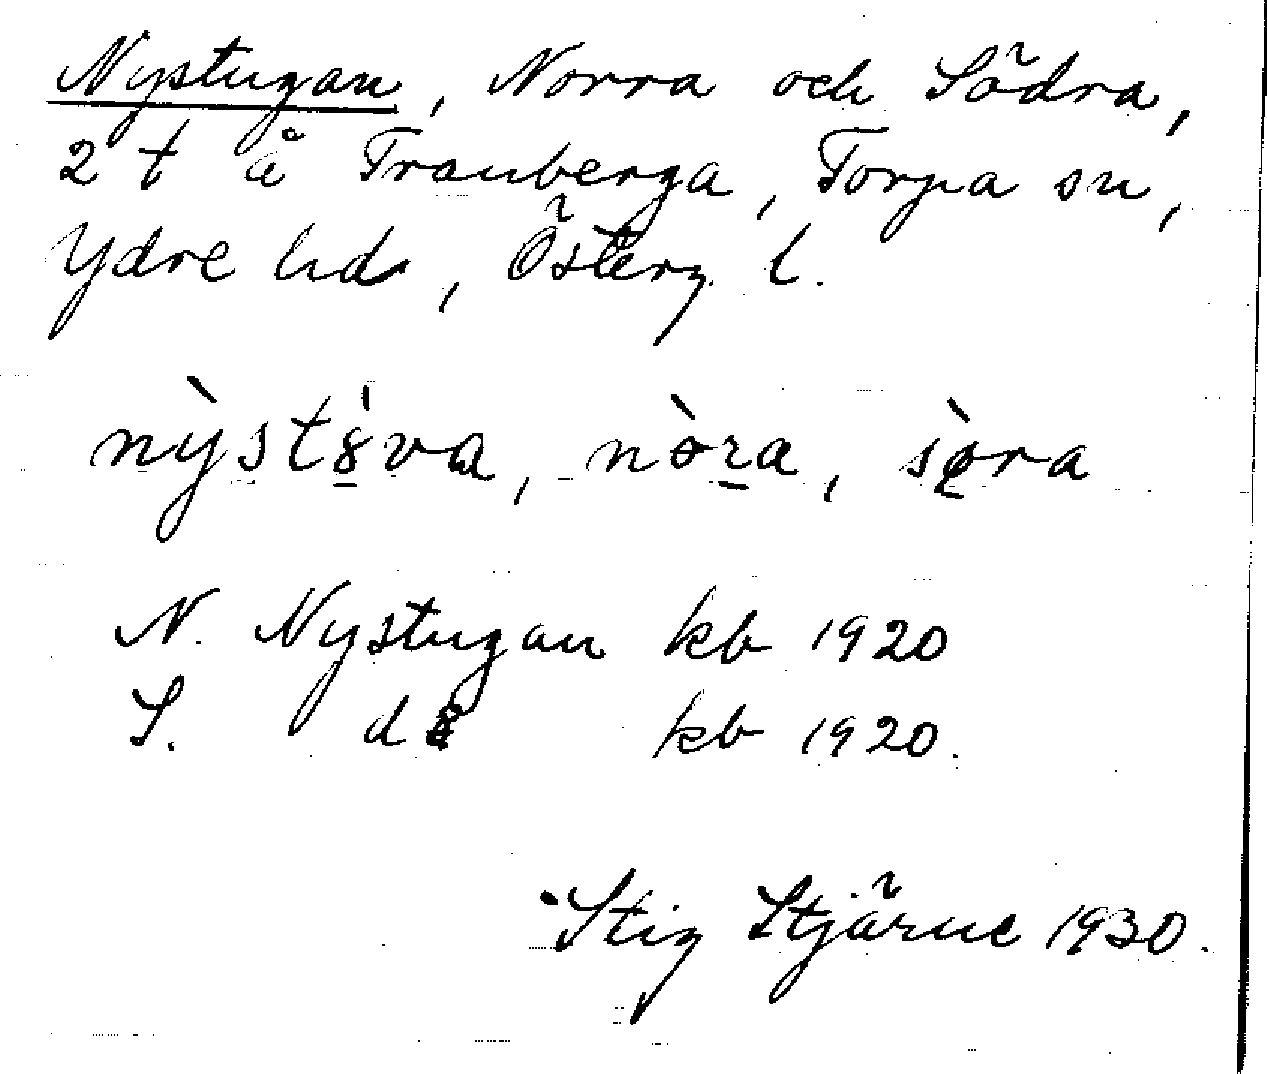 Nystugan, Norra och Södra,
2 t å Tranberga, Torpa sn,
Ydre hd, Österg l.
nỳstȣ̀va, nòra, sø̀ra
N. Nystugan kb 1920
S. do kb 1920.
Stig Stjärne 1930.